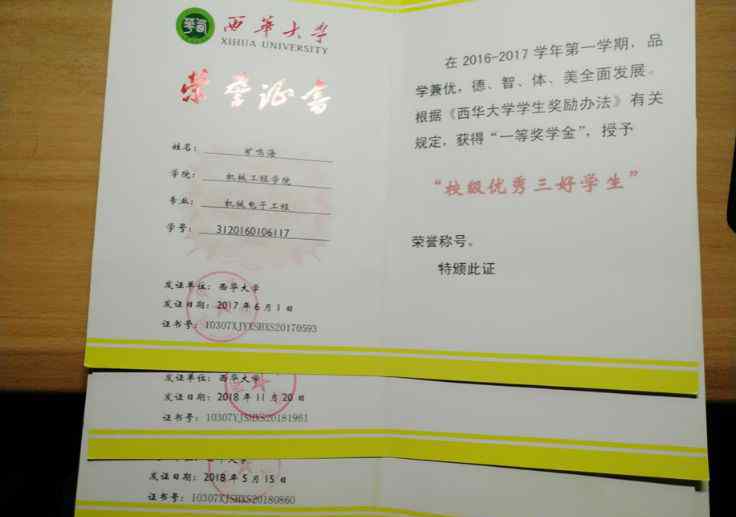 西华大学
XIHUA UNIVERSITY
荣誉证书
姓名：
学院：机械工程学院
专业：机械电子工程
学号：3120160106117
发证单位：西华大学
发证日期：2017年6月1日
证书号：
在2016-2017学年第一学期，品
学兼优，德、智、体、美全面发展。
根据《西华大学学生奖励办法》有关
规定，获得“一等奖学金”，授予
“校级优秀三好学生”
荣誉称号。
特颁此证
发证单位：西华大学
发证日期：2018年11月20日
证书号：10307XJSHXS20181961
发证日期：2018年5月15日
证书号：10307XJSHXS20180860